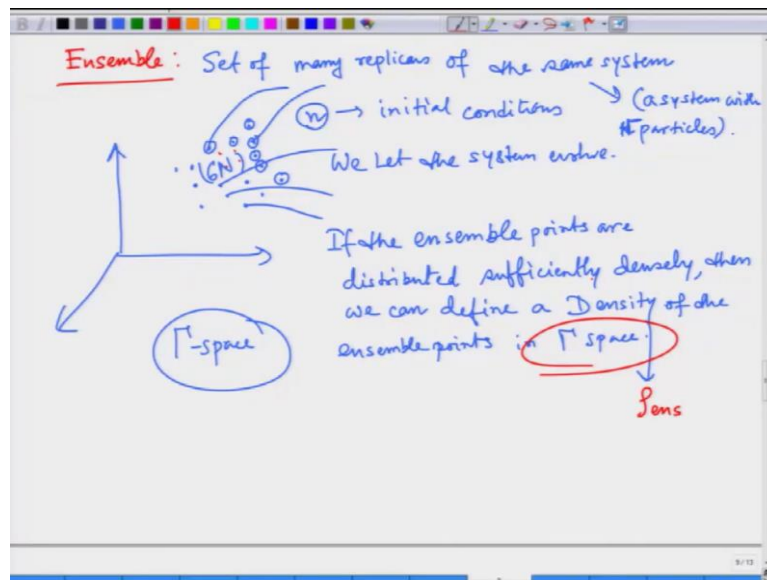 Ensemble : Set of many replicas of the same system
(a system with
N particles).
n → initial conditions
(6N)
We Let the system evolve.
If the ensemble points are
distributed sufficiently densely, then
we can define a Density of the
ensemble points in Γ space.
Γ-space
ρens
9/13